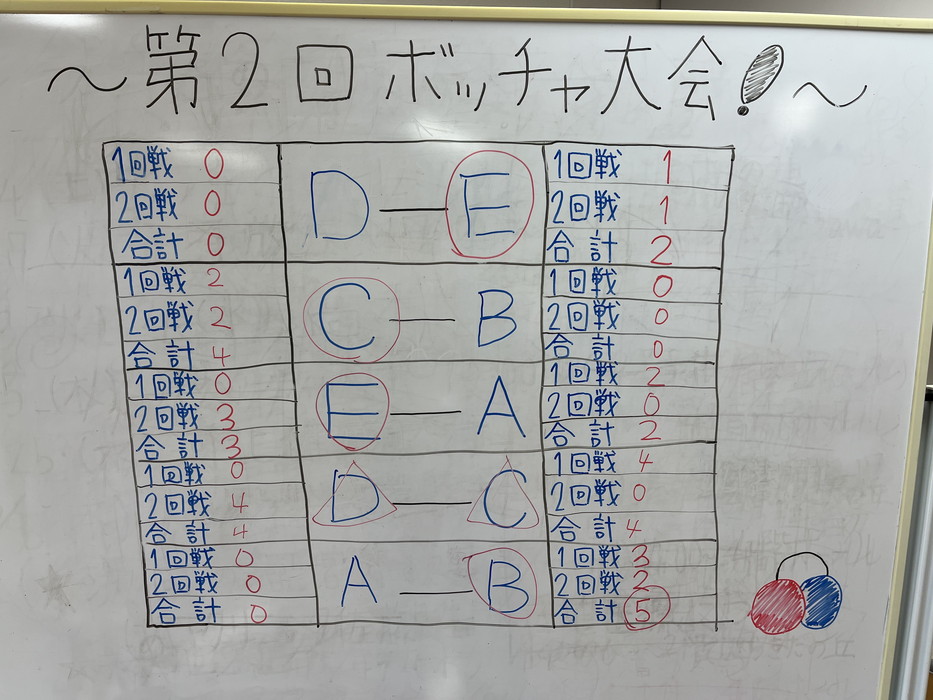 ～第2回ボッチャ大会!～
1回戦 0
2回戦 0
合計 0
D — E
1回戦 1
2回戦 1
合計 2
1回戦 2
2回戦 2
合計 4
C — B
1回戦 0
2回戦 0
合計 0
1回戦 0
2回戦 3
合計 3
E — A
1回戦 2
2回戦 0
合計 2
1回戦 0
2回戦 4
合計 4
D — C
1回戦 4
2回戦 0
合計 4
1回戦 0
2回戦 0
合計 0
A — B
1回戦 3
2回戦 2
合計 5